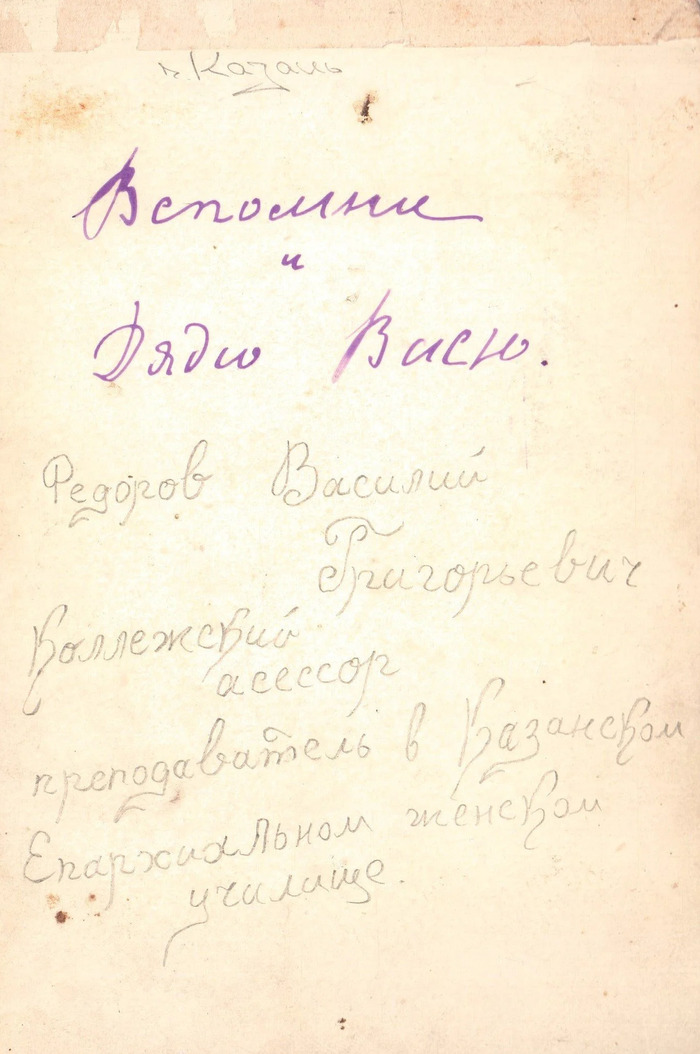 г. Казань
Вспомни
и
Дядю Васю.
Федоров Василий
Григорьевич
Коллежский
асессор
преподаватель в Казанском
Епархиальном женском
училище.